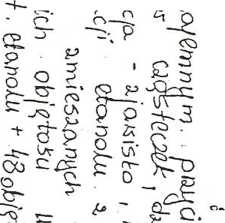 ojemnym. przyci
cząsteczek
cja - zjawisko
cji etanolu. z
zmieszanych
ich objętości
t. etanolu + 48 obję